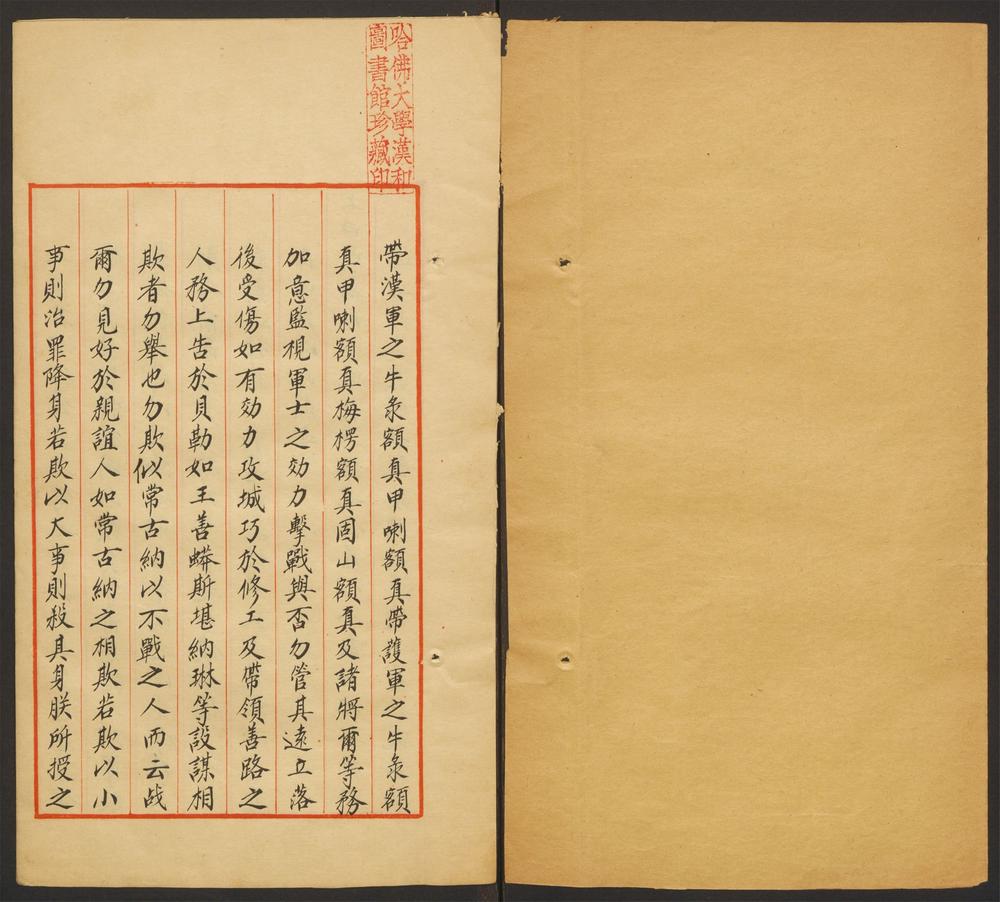 哈佛大學漢和
圖書館珍藏印
帶漢軍之牛彔額真甲喇額真帶護軍之牛彔額
真甲喇額真梅楞額真固山額真及諸將爾等務
加意監視軍士之効力擊戰與否勿管其遠立落
後受傷如有効力攻城巧於修工及帶領善路之
人務上告於貝勒如王善蟒斯堪納琳等設謀相
欺者勿舉也勿欺似常古納以不戰之人而云战
爾勿見好於親誼人如常古納之相欺若欺以小
事則治罪降身若欺以大事則殺其身朕所授之